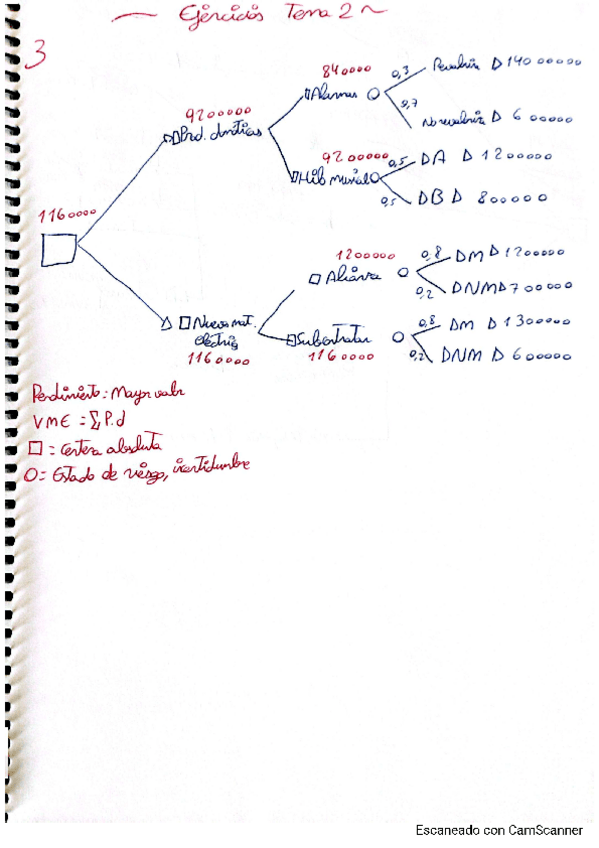 Ejercicios Tema 2
3
1160000
9200000
Prod. domóticos
840000
Alarmas
0,3
D 1400000
0,7
D 600000
9200000
0,5 DA D 1200000
0,5 DB D 800000
Nuevo mat.
1160000
1200000
Alianza
0,8 DM D 1200000
0,2 DNM D 700000
Subcontratar
1160000
0,8 DM D 1300000
0,2 DNM D 600000
Rendimiento: Mayor valor
VME = Σ P.d
□ = Certeza absoluta
O = Estado de riesgo, incertidumbre
Escaneado con CamScanner